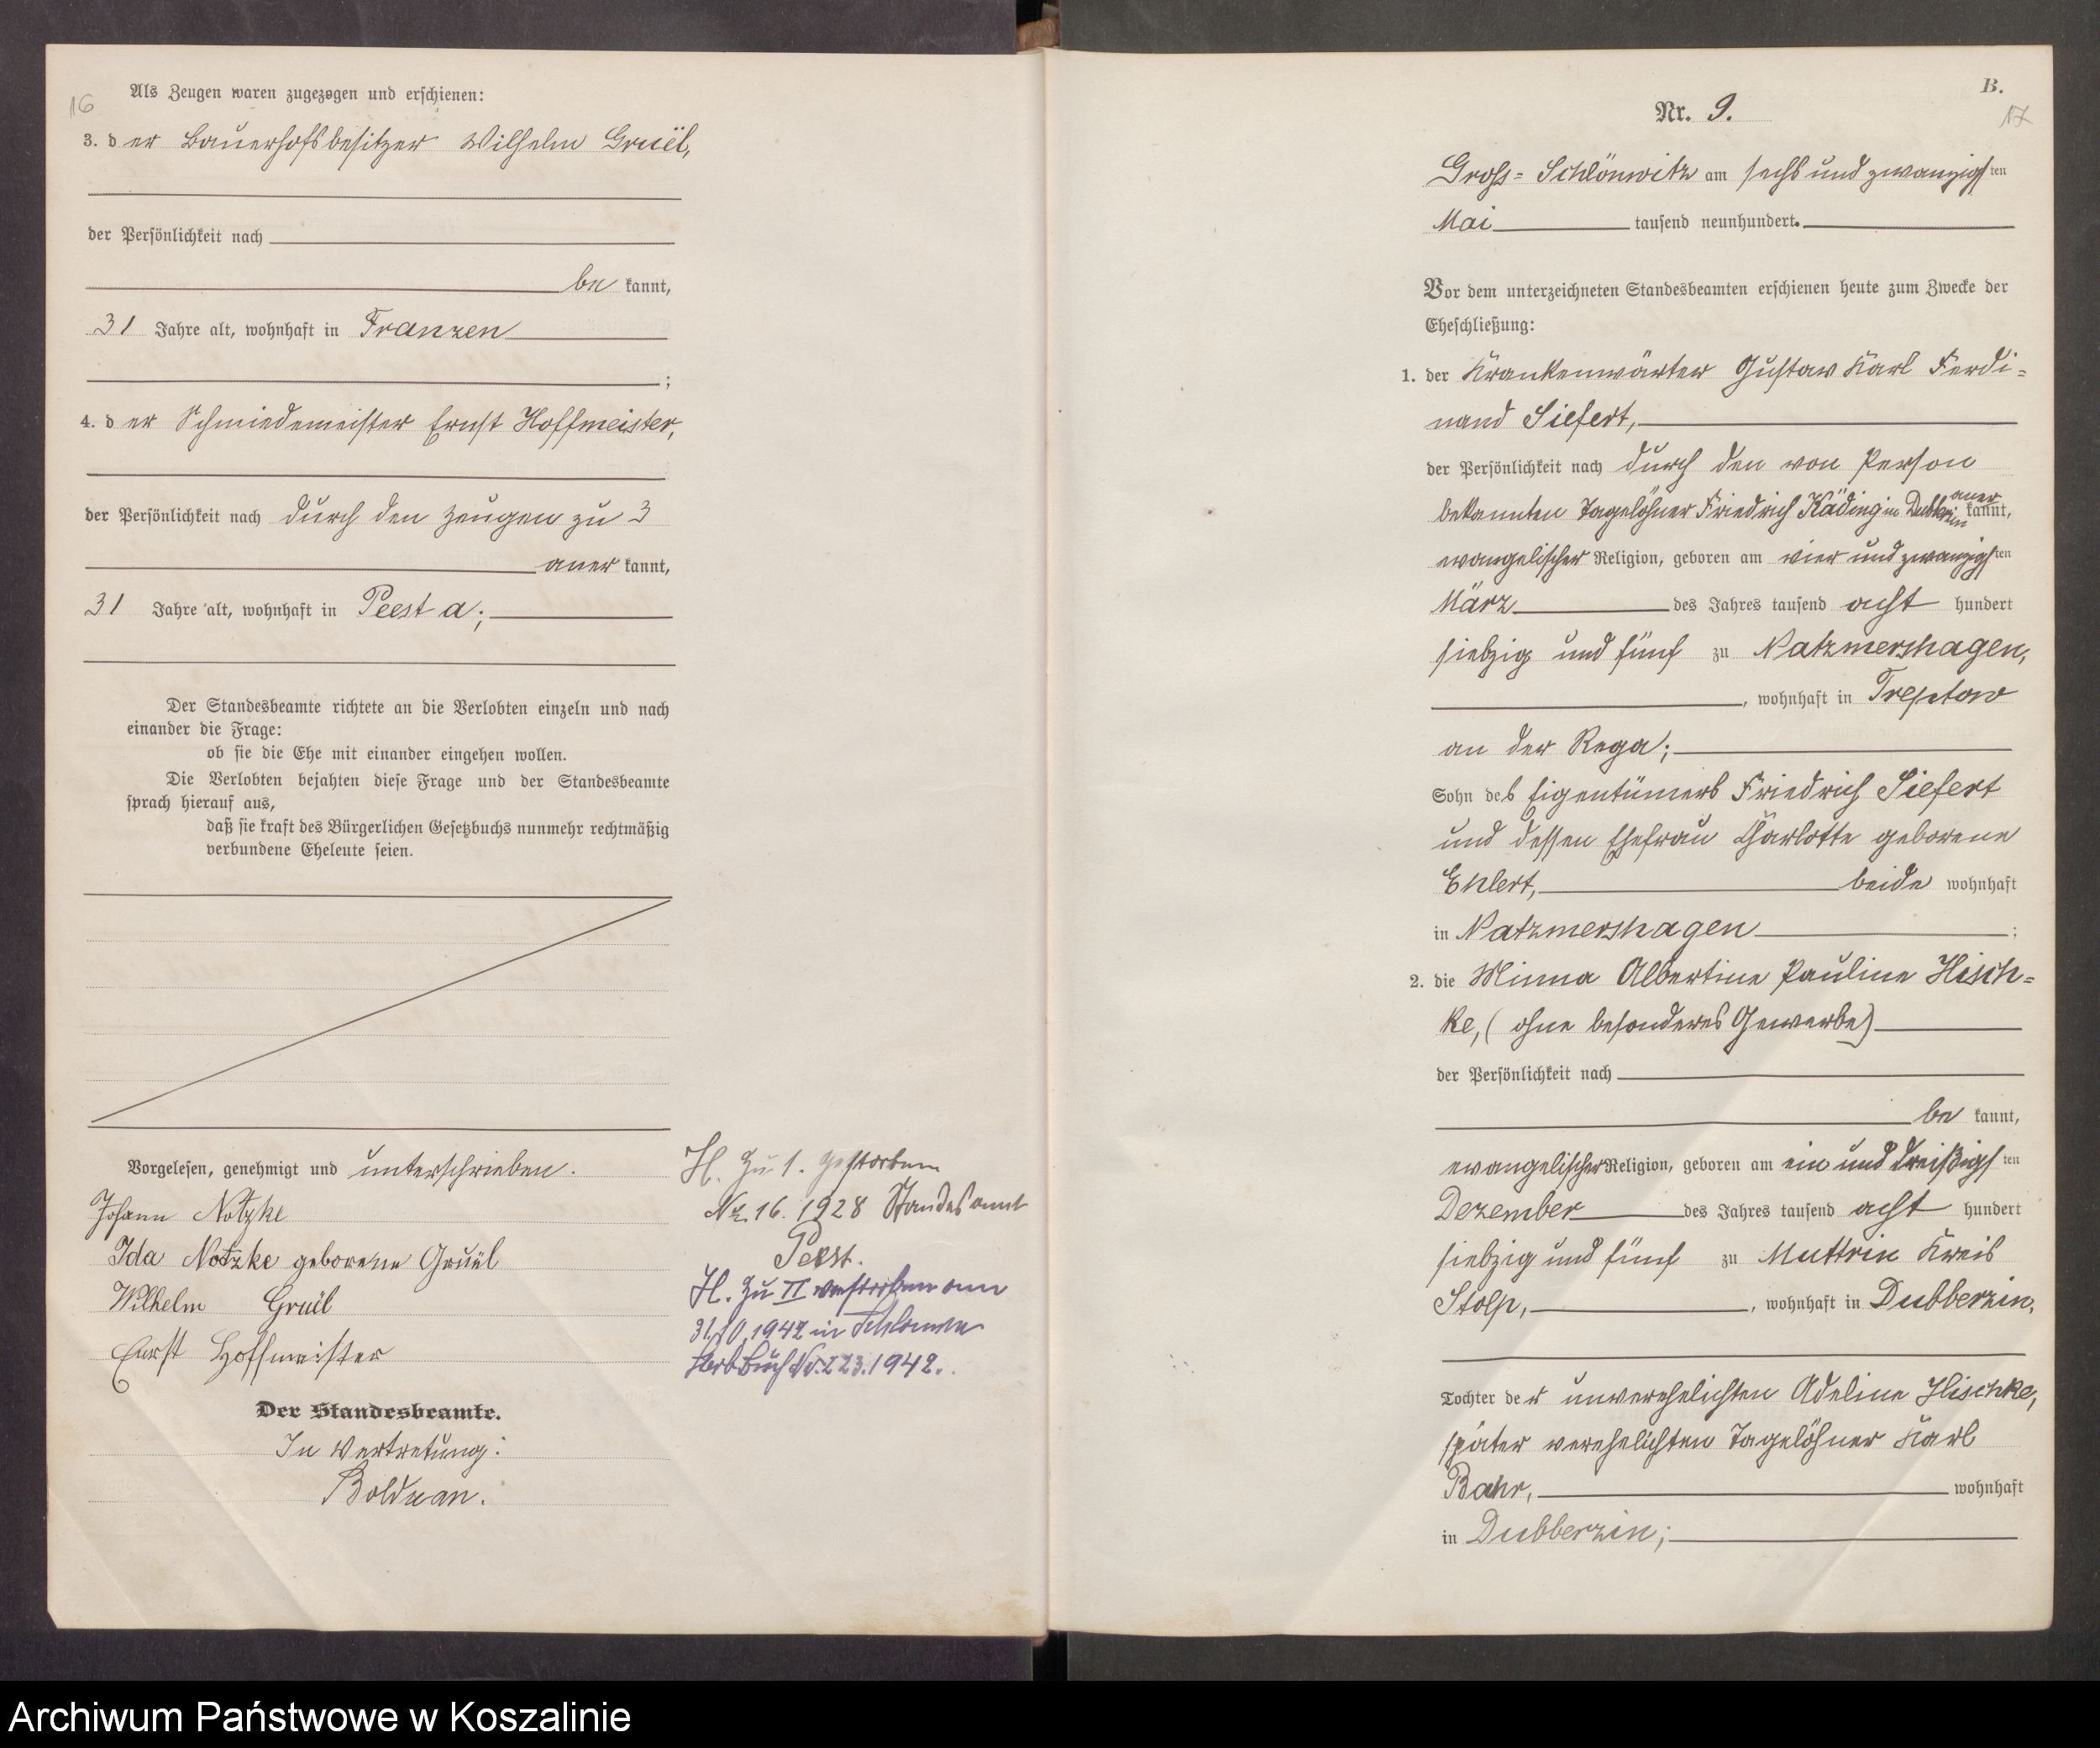 16
Als Zeugen waren zugezogen und erschienen:
3. der Bauerhofsbesitzer Wilhelm Gruël,
der Persönlichkeit nach
be kannt,
31 Jahre alt, wohnhaft in Franzen
;
4. der Schmiedemeister Ernst Hoffmeister,
der Persönlichkeit nach durch den Zeugen zu 3
aner kannt,
31 Jahre alt, wohnhaft in Peest a;
Der Standesbeamte richtete an die Verlobten einzeln und nach
einander die Frage:
ob sie die Ehe mit einander eingehen wollen.
Die Verlobten bejahten diese Frage und der Standesbeamte
sprach hierauf aus,
daß sie kraft des Bürgerlichen Gesetzbuchs nunmehr rechtmäßig
verbundene Eheleute seien.
Vorgelesen, genehmigt und unterschrieben.
Johann Notzke
Ida Notzke geborene Gruël
Wilhelm Gruël
Ernst Hoffmeister
Der Standesbeamte.
In Vertretung:
Bolduan.
H. Zu 1. gestorben
Nr. 16. 1928 Standesamt
Peest.
H. Zu II verstorben am
31.10.1942 in Schlawe
Sterbebuch Nr. 223.1942.
B.
17
Nr. 9.
Gross-Schlönwitz am sechs und zwanzigsten
Mai tausend neunhundert.
Vor dem unterzeichneten Standesbeamten erschienen heute zum Zwecke der
Eheschließung:
1. der Krankenwärter Gustav Karl Ferdi-
nand Siefert,
der Persönlichkeit nach durch den von Person
bekannten Tagelöhner Friedrich Käding in Dubberzin aner kannt,
evangelischer Religion, geboren am vier und zwanzigsten
März des Jahres tausend acht hundert
siebzig und fünf zu Natzmershagen,
, wohnhaft in Treptow
an der Rega;
Sohn des Eigentümers Friedrich Siefert
und dessen Ehefrau Charlotte geborene
Ehlert, beide wohnhaft
in Natzmershagen ;
2. die Minna Albertine Pauline Hisch-
ke, (ohne besonderes Gewerbe)
der Persönlichkeit nach
be kannt,
evangelischer Religion, geboren am ein und dreißigsten
Dezember des Jahres tausend acht hundert
siebzig und fünf zu Muttrin Kreis
Stolp, , wohnhaft in Dubberzin,
Tochter der unverehelichten Adeline Hischke,
später verehelichten Tagelöhner Karl
Bahr, wohnhaft
in Dubberzin;
Archiwum Państwowe w Koszalinie